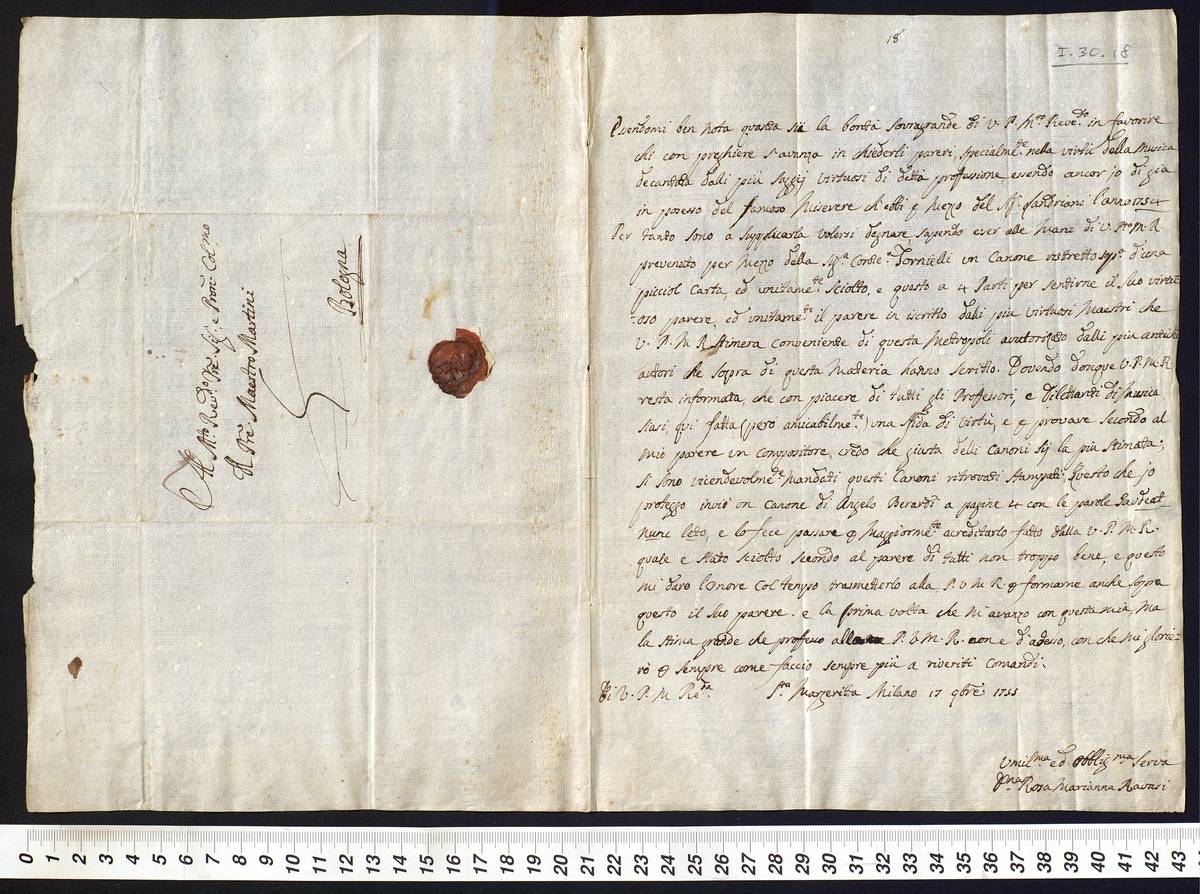 Al M.to Rev.do Pre Sig.e e Pron Col.mo
Il Pre Maestro Martini
Bologna
18
I.30.18
Essendomi ben nota quanta sii la bontà sovragrande di V. P. M.to Reve.do in favorire
chi con preghiere s'avanza in chiederli pareri, specialm.te nella virtù della Musica
decantata dalli più saggij virtuosi di detta professione, essendo ancor jo di già
in possesso del famoso Miserere ch'ebbi p mezzo del Sig. Landriani l'anno 1754
Per tanto sono a supplicarla volersi degnare, sapendo esser alle Mani di V. P.to M. R.
prevenuto per mezzo della Sig.a Conte. Tornielli un Canone ristretto sop.a d'una
picciol Carta, ed unitame.te sciolto, e questo a 4 Parti per sentirne il suo virtu-
-oso parere, ed unitame.te il parere in iscritto dalli più virtuosi Maestri che
V. P. M. R. stimerà conveniente di questa Metropoli autorizato dalli più antichi
autori che sopra di questa Materia hanno scritto. Dovendo donque V. P. M. R.
resta informata, che con piacere di tutti gli Professori, e Dilettanti di Musica
siasi qui fatta (però amicabilme.te) una sfida di virtù, e p provare secondo al
mio parere un compositore, credo che giusta delli Canoni sij la più stimata;
si sono vicendevolme.te mandati questi Canoni ritrovati stampati. Questo che jo
proteggo inviò un Canone di Angelo Berardi a pagine 4 con le parole Gaudeat
Nunc leto, e lo fece passare p maggiorme.te acreditarlo fatto dalla V. P. M. R.
quale è stato sciolto secondo al parere di tutti non troppo bene, e questo
mi darò l'onore col tempo trasmetterlo alla P. V. M. R. p formarne anche sopra
questo il suo parere. e la prima volta che m'avanzo con questa mia, ma
la stima grande che professo alla P. V. M. R. non e d'adesso, con che mi glorie-
rò p sempre come faccio sempre più a riveriti comandi.
Di V. P. M. Re.da S.ta Margerita Milano 17 9bre 1755
Umil.ma ed obblig.ma Serva
D.na Rosa Marianna Ravasi
0 1 2 3 4 5 6 7 8 9 10 11 12 13 14 15 16 17 18 19 20 21 22 23 24 25 26 27 28 29 30 31 32 33 34 35 36 37 38 39 40 41 42 43